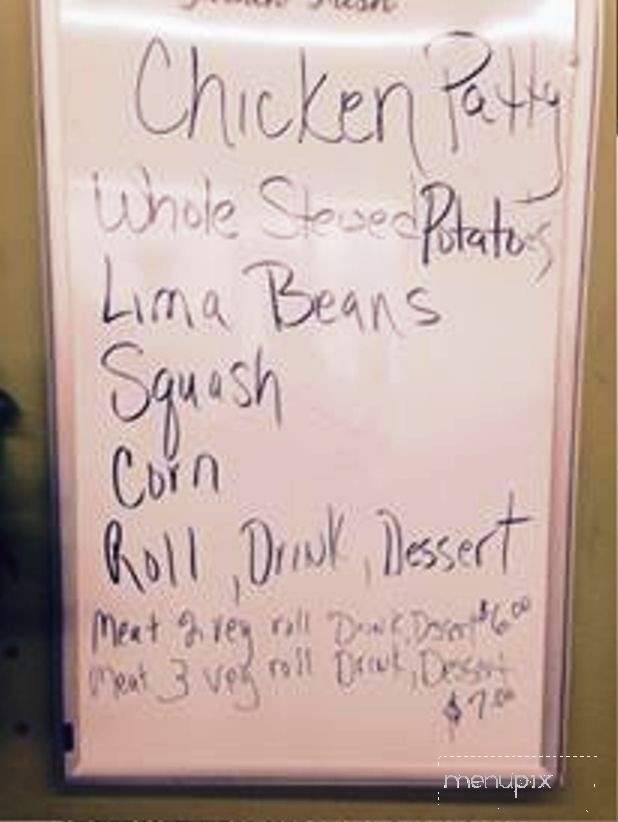 Chicken Patty
Whole Stewed Potatoes
Lima Beans
Squash
Corn
Roll, Drink, Dessert
Meat 2 veg roll Drink, Desert $6.00
Meat 3 veg roll Drink, Dessert
$7.00
menupix